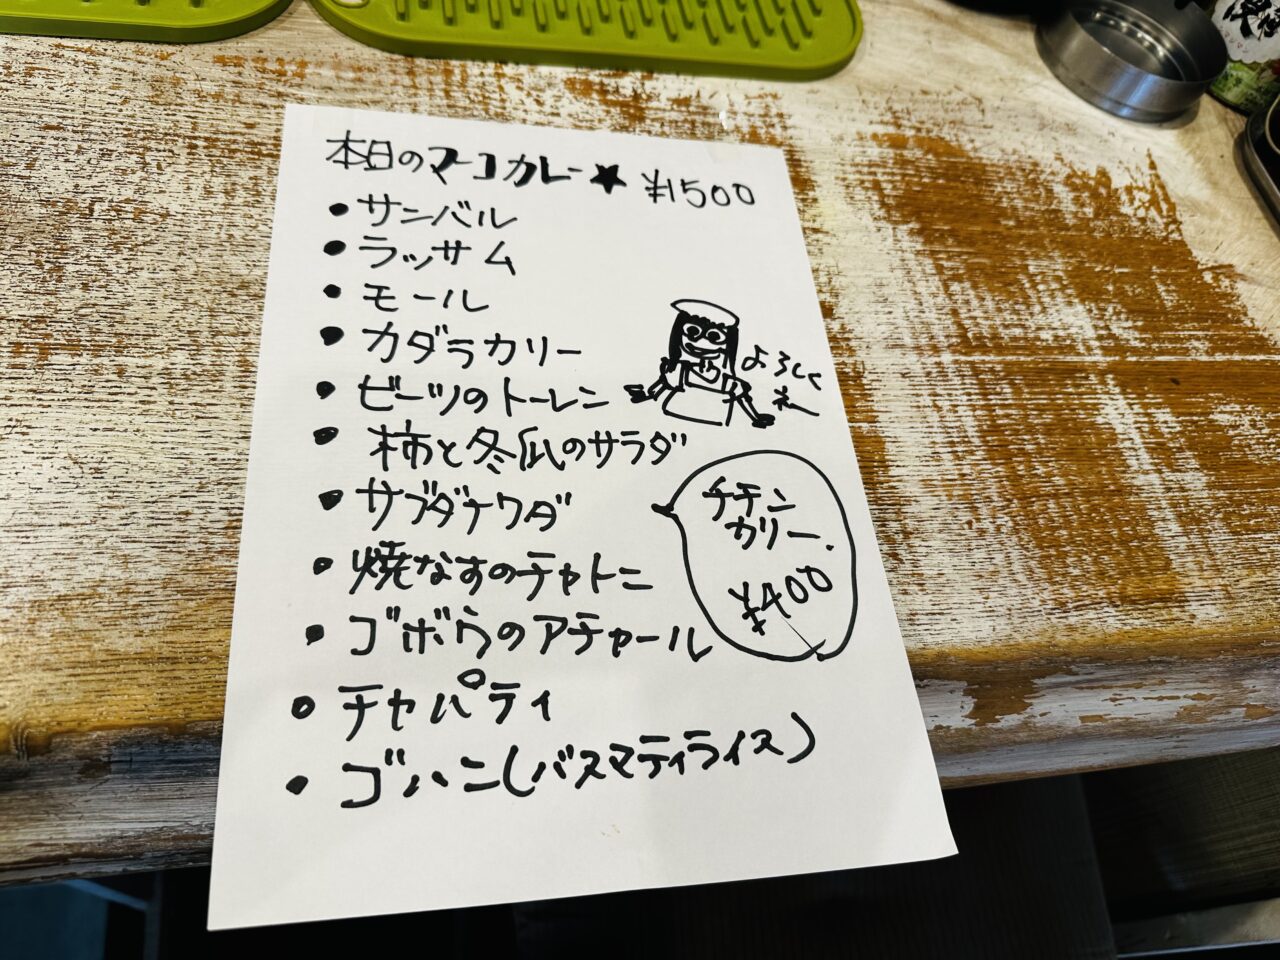 本日のマーコカレー★ ¥1500
• サンバル
• ラッサム
• モール
• カダラカリー
• ビーツのトーレン
• 柿と冬瓜のサラダ
• サブダナワダ
• 焼なすのチャトニ
• ゴボウのアチャール
• チャパティ
• ゴハン(バスマティライス)
よろしく
ネー
チキン
カリー.
¥400